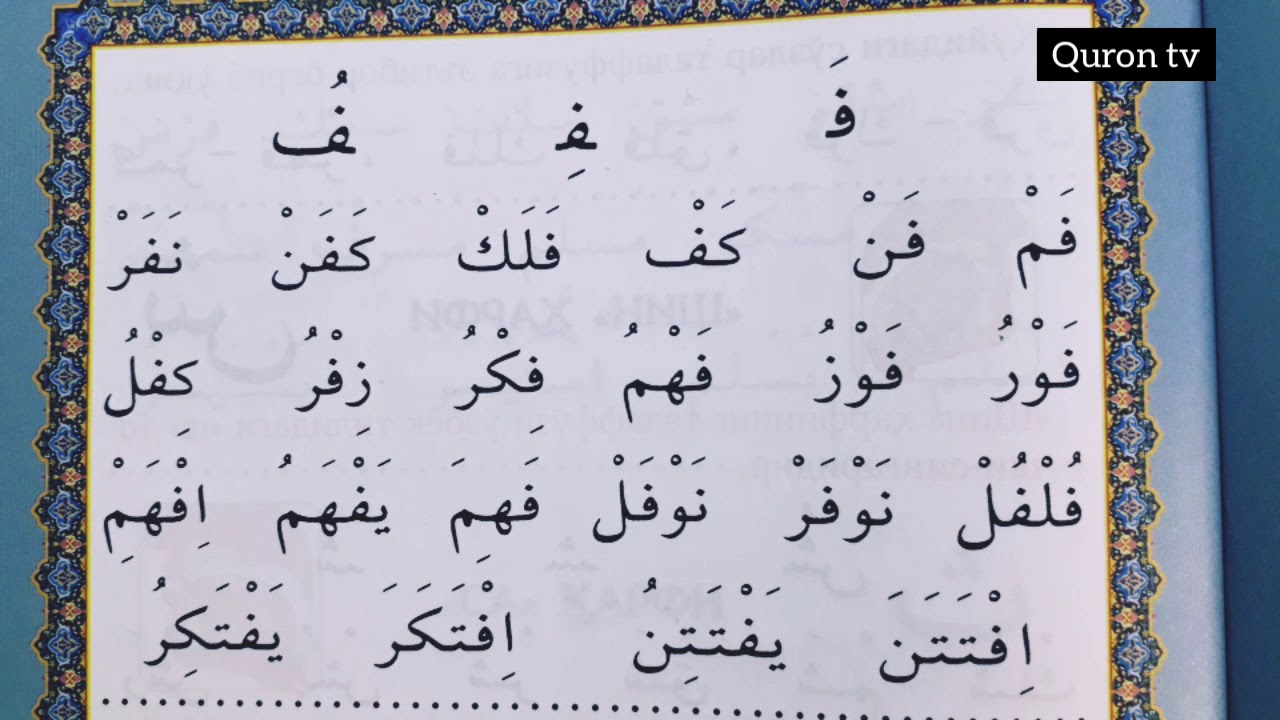 Quron tv
فَ فِ فُ
فَمْ فَنْ كَفْ فَلَكْ كَفَنْ نَفَرْ
فَوْرُ فَوْزُ فَهْمُ فِكْرُ زِفْرُ كِفْلُ
فُلْفُلْ نَوْفَرْ نَوْفَلْ فَهِمَ يَفْهَمُ اِفْهَمْ
اِفْتَتَنَ يَفْتَتِنُ اِفْتَكَرَ يَفْتَكِرُ